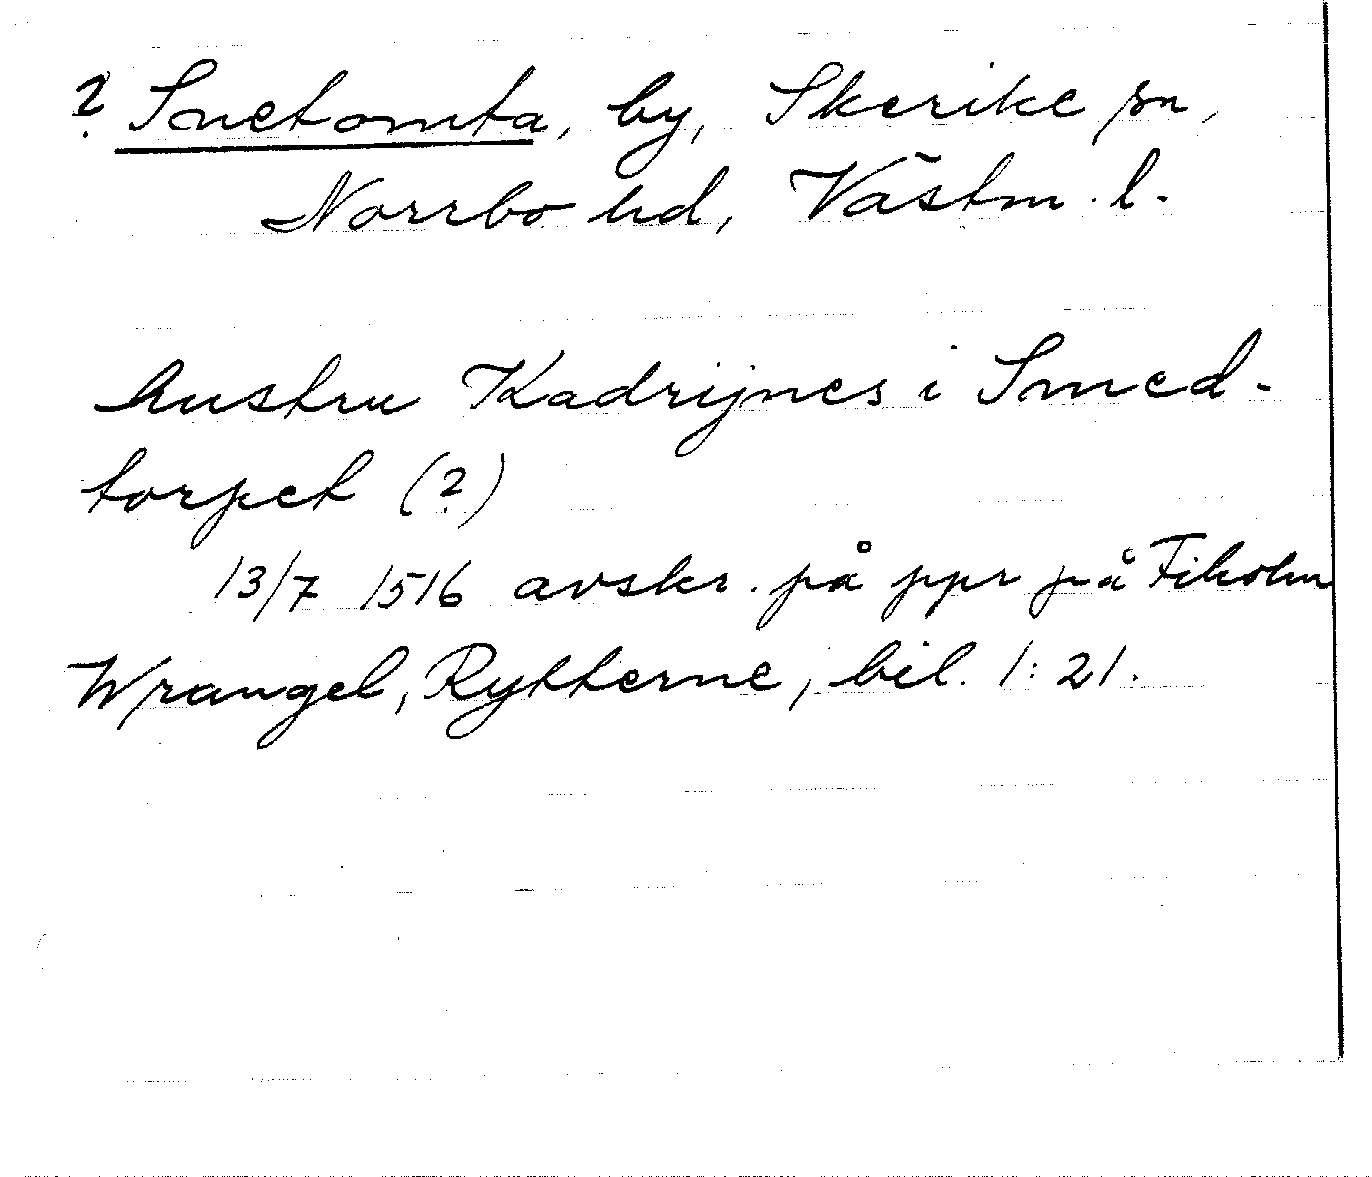 ? Snetomta, by, Skerike sn,
Norrbo hd, Västm. l.
hustru Kadrijnes i Smed-
torpet (?)
13/7 1516 avskr. på ppr på Fiholm
Wrangel, Rytterne, bil. 1:21.